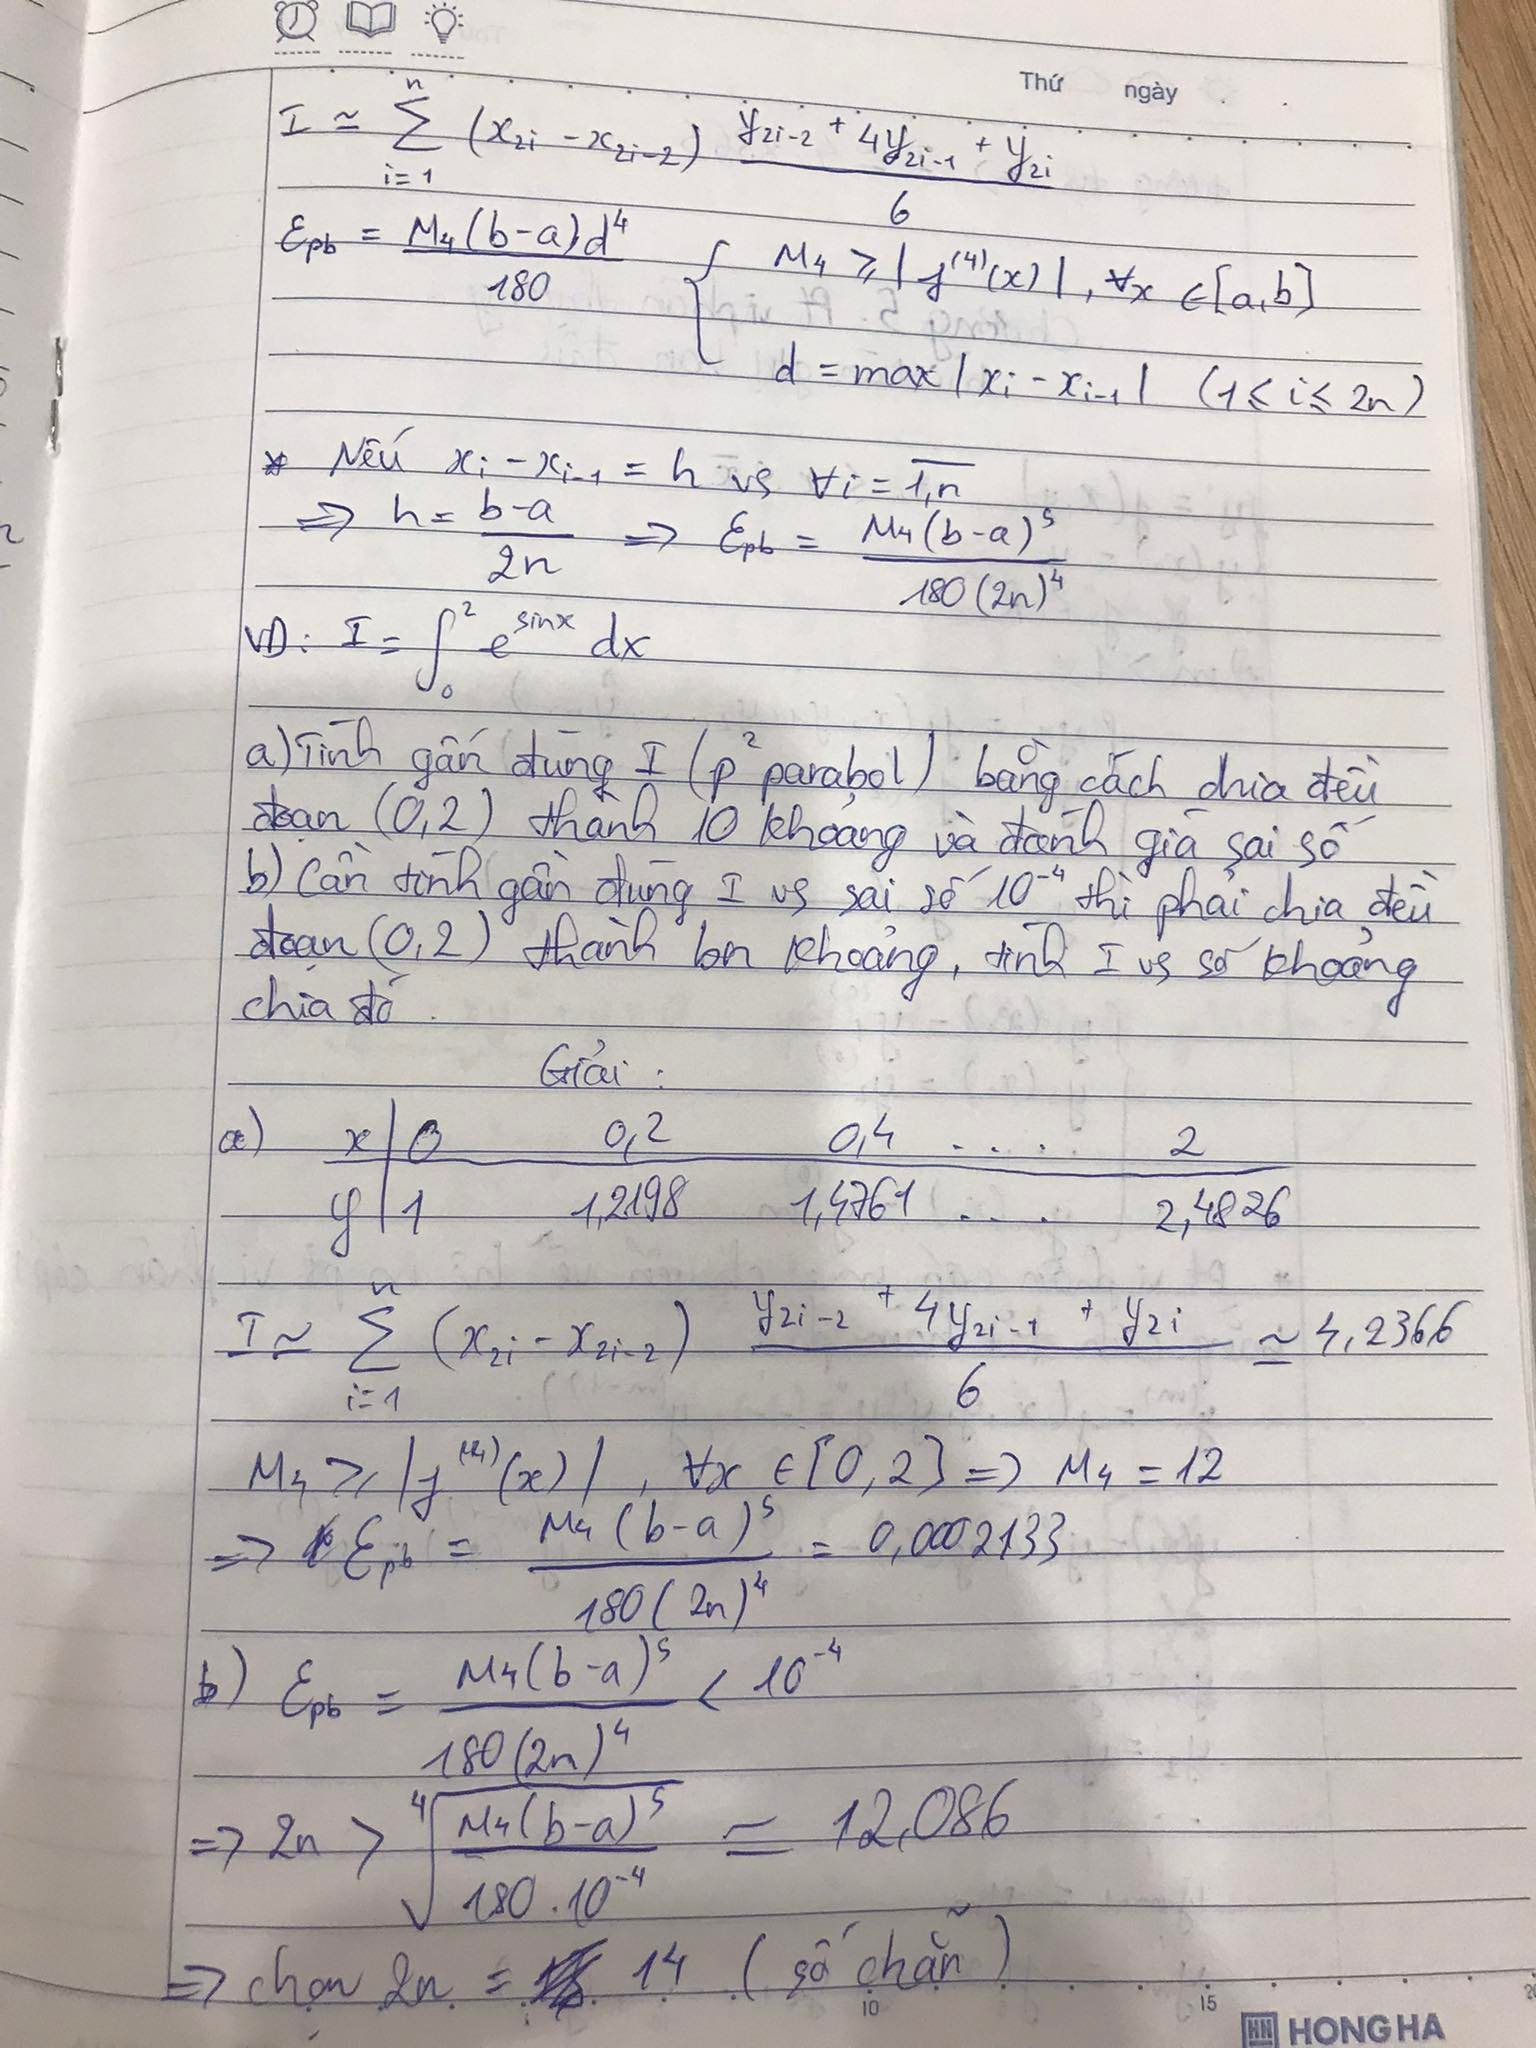 Thứ ngày
I ≃ ∑_{i=1}^{n} (x_{2i} - x_{2i-2}) (y_{2i-2} + 4y_{2i-1} + y_{2i}) / 6
ε_{pb} = M_4(b-a)d^4 / 180 { M_4 ≥ |y^{(4)}(x)|, ∀x ∈ [a,b]
d = max|x_i - x_{i-1}| (1 ≤ i ≤ 2n)
* Nếu x_i - x_{i-1} = h vs ∀i = \overline{1,n}
=> h = (b-a) / 2n => ε_{pb} = M_4(b-a)^5 / 180(2n)^4
VD: I = ∫_0^2 e^{sinx} dx
a) Tính gần đúng I (p^2 parabol) bằng cách chia đều
đoạn (0,2) thành 10 khoảng và đánh giá sai số
b) Cần tính gần đúng I vs sai số 10^{-4} thì phải chia đều
đoạn (0,2) thành bn khoảng, tính I vs số khoảng
chia đó.
Giải:
a) x | 0 0,2 0,4 .... 2
y | 1 1,2198 1,4761 .... 2,4826
I ≃ ∑_{i=1}^{n} (x_{2i} - x_{2i-2}) (y_{2i-2} + 4y_{2i-1} + y_{2i}) / 6 ≃ 4,2366
M_4 ≥ |y^{(4)}(x)|, ∀x ∈ [0,2] => M_4 = 12
=> ε_{pb} = M_4(b-a)^5 / 180(2n)^4 = 0,0002133
b) ε_{pb} = M_4(b-a)^5 / 180(2n)^4 < 10^{-4}
=> 2n > ∜(M_4(b-a)^5 / 180.10^{-4}) ≃ 12,086
=> chọn 2n = 14 (số chẵn)
10 15 20
HH HONG HA